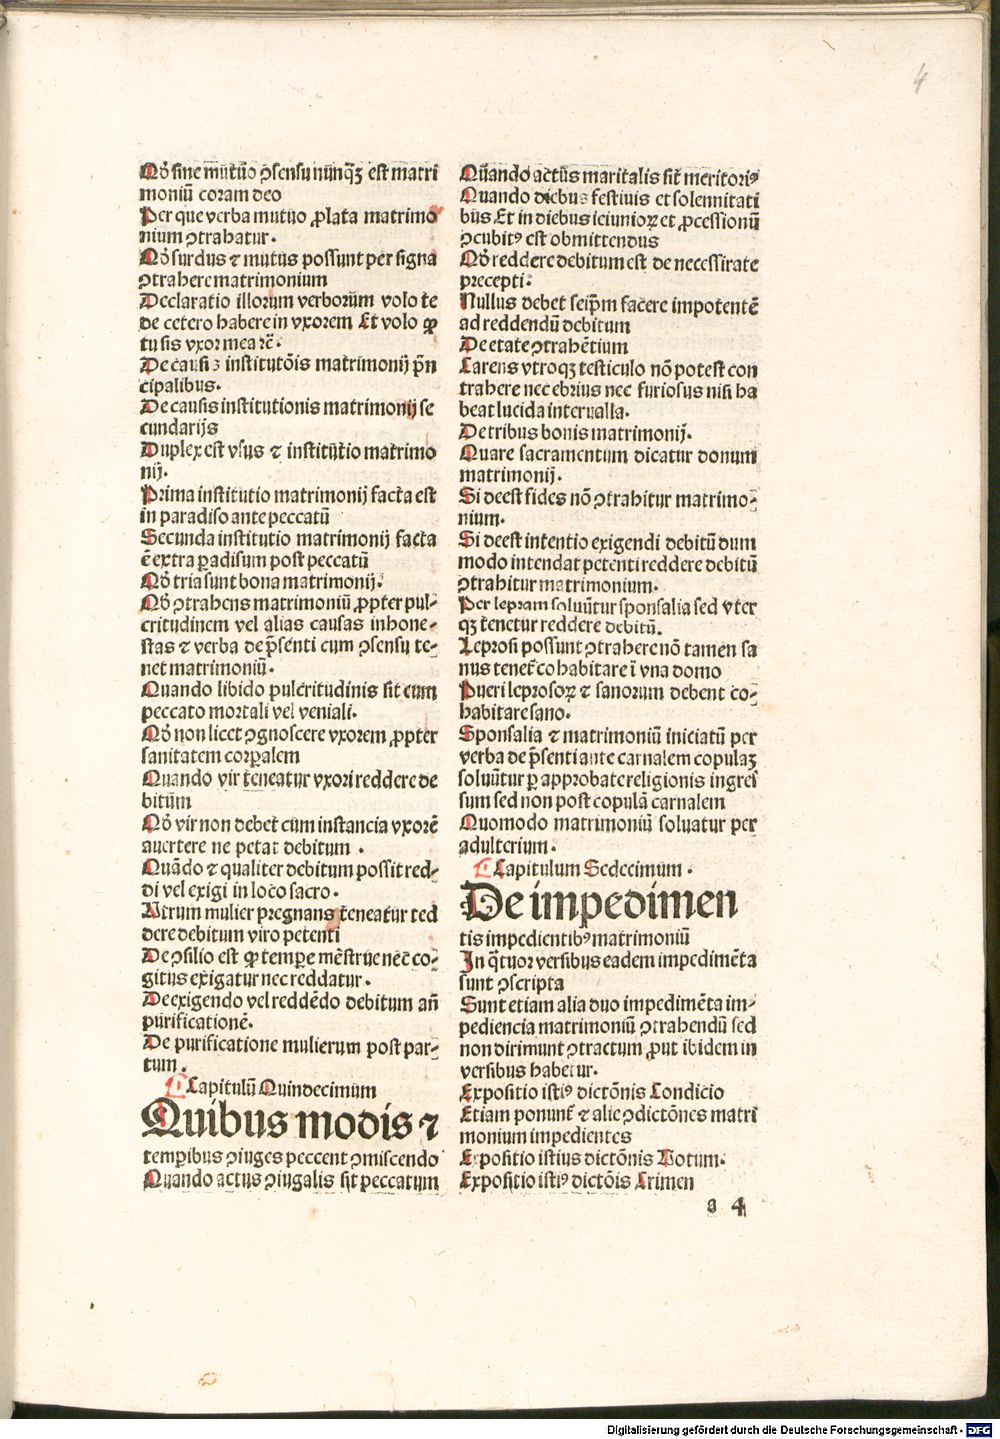 4
Qđ sine mutuo ꝯsensu nunqꝫ est matri
moniũ coram deo
Per que verba mutuo ꝓlata matrimo
nium ꝯtrahatur.
Qđ surdus ⁊ mutus possunt per signa
ꝯtrahere matrimonium
Declaratio illorum verborum volo te
de cetero habere in vxorem Et volo ꝙ
tu sis vxor mea ꝛc̃.
De causis institutõis matrimonij p̃n
cipalibus.
De causis institutionis matrimonij se
cundarijs
Duplex est vsus ⁊ institutio matrimo
nij.
Prima institutio matrimonij facta est
in paradiso ante peccatũ
Secunda institutio matrimonij facta
ẽ extra ꝑadisum post peccatũ
Qđ tria sunt bona matrimonij.
Qđ ꝯtrahens matrimoniũ ꝓpter pul⸗
critudinem vel alias causas inhone⸗
stas ⁊ verba de p̃senti cum ꝯsensu te⸗
net matrimoniũ.
Quando libido pulcritudinis sit cum
peccato mortali vel veniali.
Qđ non licet ꝯgnoscere vxorem ꝓpter
sanitatem corꝑalem
Quando vir teneatur vxori reddere de
bitum
Qđ vir non debet cum instancia vxorẽ
auertere ne petat debitum .
Quãdo ⁊ qualiter debitum possit red⸗
di vel exigi in loco sacro.
Vtrum mulier pregnans teneatur red
dere debitum viro petenti
De ꝯsilio est ꝙ tempe mẽstrue nec co⸗
gitus exigatur nec reddatur.
De exigendo vel reddẽdo debitum añ
purificationẽ.
De purificatione mulierum post par⸗
tum.
Capitulũ Quindecimum
Quibus modis ⁊
temꝑibus ꝯiuges peccent ꝯmiscendo
Quando actus ꝯiugalis sit peccatum
Quando actus maritalis sit meritoriꝰ
Quando diebus festiuis et solennitati
bus Et in diebus ieiunioꝝ et ꝓcessionũ
ꝯcubitꝰ est obmittendus
Qđ reddere debitum est de necessitate
precepti.
Nullus debet seip̃m facere impotentẽ
ad reddendũ debitum
De etate ꝯtrahẽtium
Carens vtroqꝫ testiculo nõ potest con
trahere nec ebrius nec furiosus nisi ha
beat lucida interualla.
De tribus bonis matrimonij.
Quare sacramentum dicatur donum
matrimonij.
Si deest fides nõ ꝯtrahitur matrimo⸗
nium.
Si deest intentio exigendi debitũ dum
modo intendat petenti reddere debitũ
ꝯtrahitur matrimonium.
Per lepram soluũtur sponsalia sed vter
qꝫ tenetur reddere debitũ.
Leprosi possunt ꝯtrahere nõ tamen sa
nus tenet̃ cohabitare ĩ vna domo
Pueri leprosoꝝ ⁊ sanorum debent co⸗
habitare sano.
Sponsalia ⁊ matrimoniũ iniciatũ per
verba de p̃senti ante carnalem copulaꝫ
soluũtur ꝑ approbate religionis ingres
sum sed non post copulã carnalem
Quomodo matrimoniũ soluatur per
adulterium.
Capitulum Sedecimum.
De impedimen
tis impedientibꝰ matrimoniũ
In q̃tuor versibus eadem impedimẽta
sunt ꝯscripta
Sunt etiam alia duo impedimẽta im⸗
pediencia matrimoniũ ꝯtrahendũ sed
non dirimunt ꝯtractum ꝓut ibidem in
versibus habetur.
Expositio istiꝰ dictõnis Condicio
Etiam ponunt̃ ⁊ alie ꝯdictões matri
monium impedientes
Expositio istius dictõnis Votum.
Expositio istiꝰ dictõis Crimen
a 4
Digitalisierung gefördert durch die Deutsche Forschungsgemeinschaft - DFG